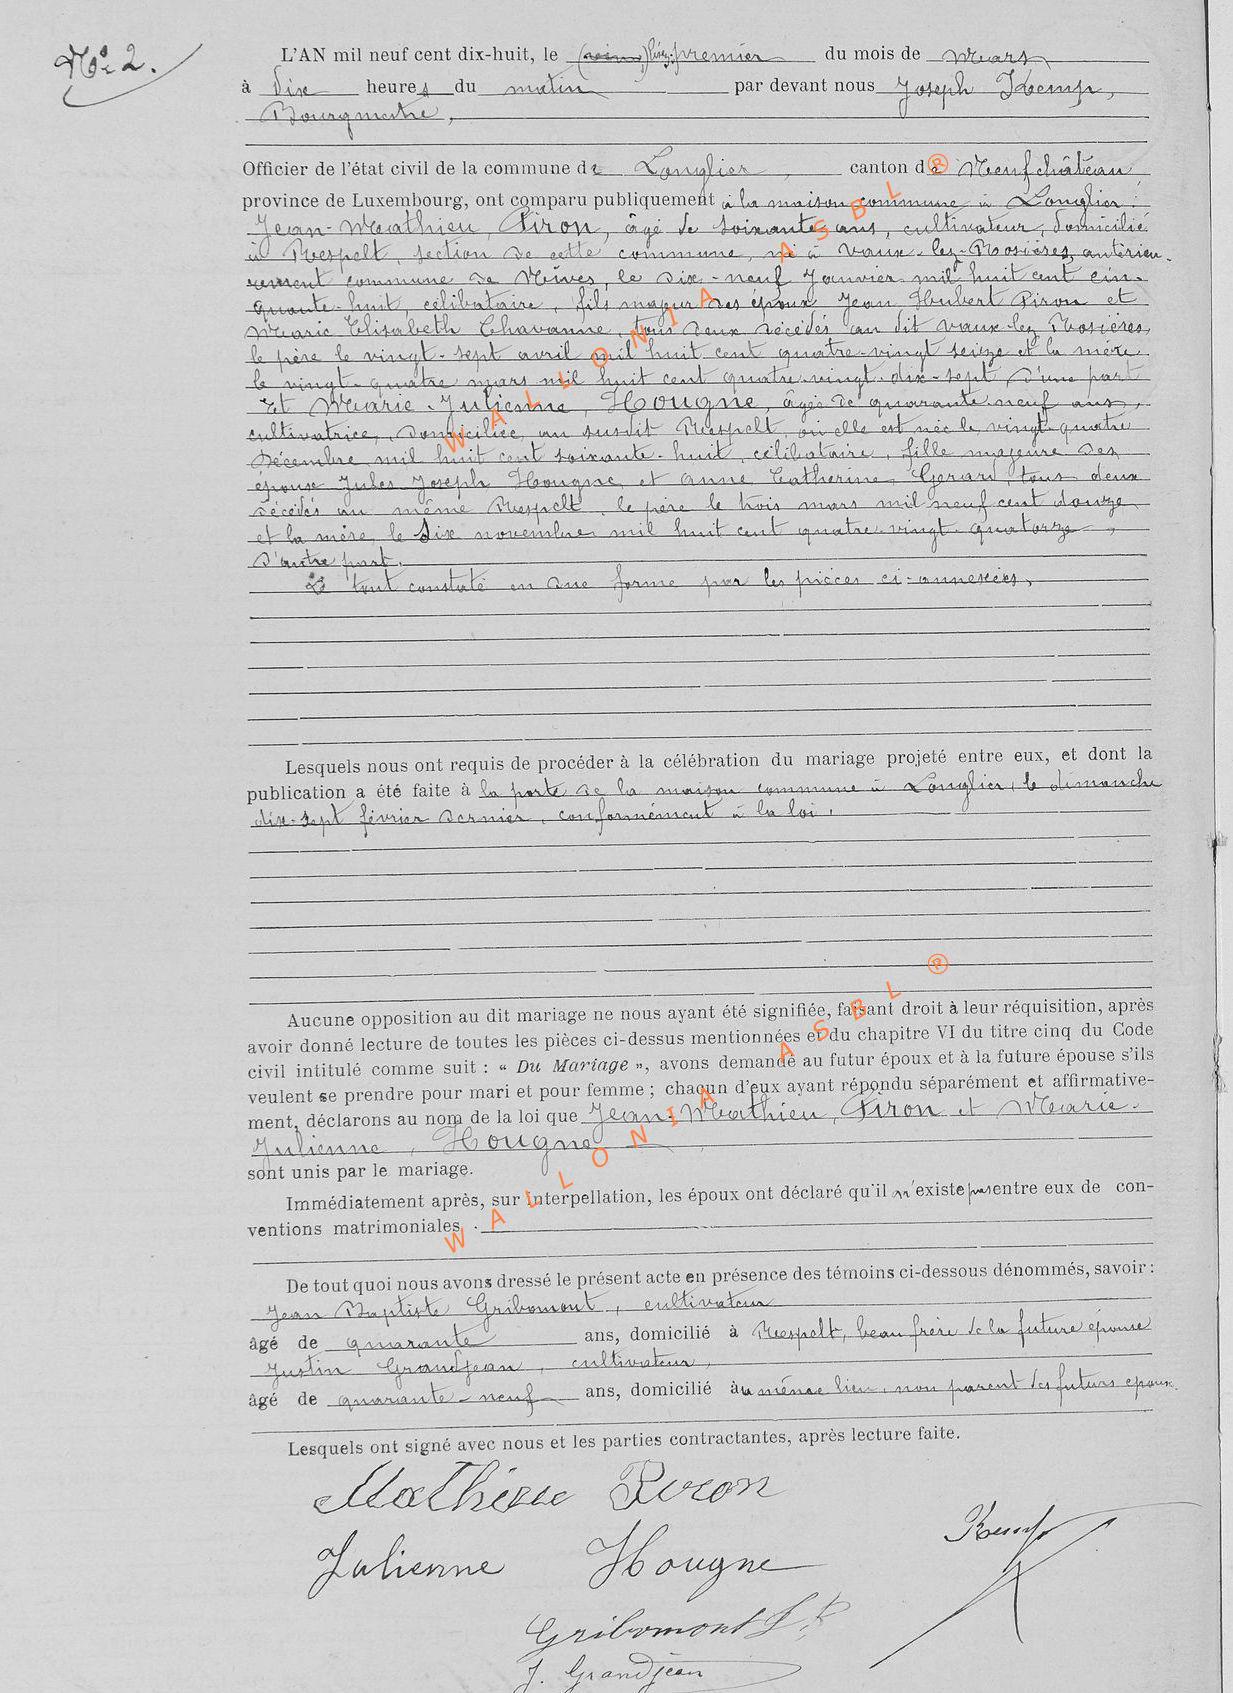 No 2.
L'AN mil neuf cent dix-huit, le lisez: premier du mois de Mars
à dix heures du matin par devant nous Joseph Kemp,
Bourgmestre,
Officier de l'état civil de la commune de Longlier, canton de Neufchâteau
province de Luxembourg, ont comparu publiquement à la maison commune à Longlier:
Jean-Mathieu, Piron, âgé de soixante ans, cultivateur, domicilié
à Respelt, section de cette commune, né à Vaux-lez-Rosières, antérieu-
rement commune de Nives, le dix-neuf Janvier mil huit cent cin-
quante-huit, célibataire, fils majeur des époux Jean Hubert Piron et
Marie Elisabeth Chavanne, tous deux décédés au dit Vaux-lez Rosières,
le père le vingt-sept avril mil huit cent quatre-vingt seize et la mère
le vingt-quatre mars mil huit cent quatre-vingt-dix-sept d'une part
Et Marie-Julienne, Hougne, âgée de quarante neuf ans,
cultivatrice, domiciliée au susdit Respelt, où elle est née le vingt-quatre
Décembre mil huit cent soixante-huit, célibataire, fille majeure des
époux Jules Joseph Hougne et Anne Catherine Gerard, tous deux
décédés au même Respelt, le père le trois mars mil neuf cent douze
et la mère le six novembre mil huit cent quatre-vingt-quatorze,
d'autre part.
Le tout constaté en due forme par les pièces ci-annexées.
Lesquels nous ont requis de procéder à la célébration du mariage projeté entre eux, et dont la
publication a été faite à la porte de la maison commune à Longlier, le dimanche
dix-sept février dernier, conformément à la loi.
Aucune opposition au dit mariage ne nous ayant été signifiée, faisant droit à leur réquisition, après
avoir donné lecture de toutes les pièces ci-dessus mentionnées et du chapitre VI du titre cinq du Code
civil intitulé comme suit : « Du Mariage », avons demandé au futur époux et à la future épouse s'ils
veulent se prendre pour mari et pour femme ; chaqun d'eux ayant répondu séparément et affirmative-
ment, déclarons au nom de la loi que Jean-Mathieu, Piron et Marie-
Julienne, Hougne
sont unis par le mariage.
Immédiatement après, sur interpellation, les époux ont déclaré qu'il n'existe pas entre eux de con-
ventions matrimoniales.
De tout quoi nous avons dressé le présent acte en présence des témoins ci-dessous dénommés, savoir :
Jean Baptiste Gribomont, cultivateur
âgé de quarante ans, domicilié à Respelt, beau frère de la future épouse
Justin Grandjean, cultivateur,
âgé de quarante-neuf ans, domicilié au même lieu, non parent des futurs époux.
Lesquels ont signé avec nous et les parties contractantes, après lecture faite.
Mathieu Piron
Kemp
Julienne Hougne
Gribomont
J. Grandjean
WALLONIA ASBL ®
WALLONIA ASBL ®